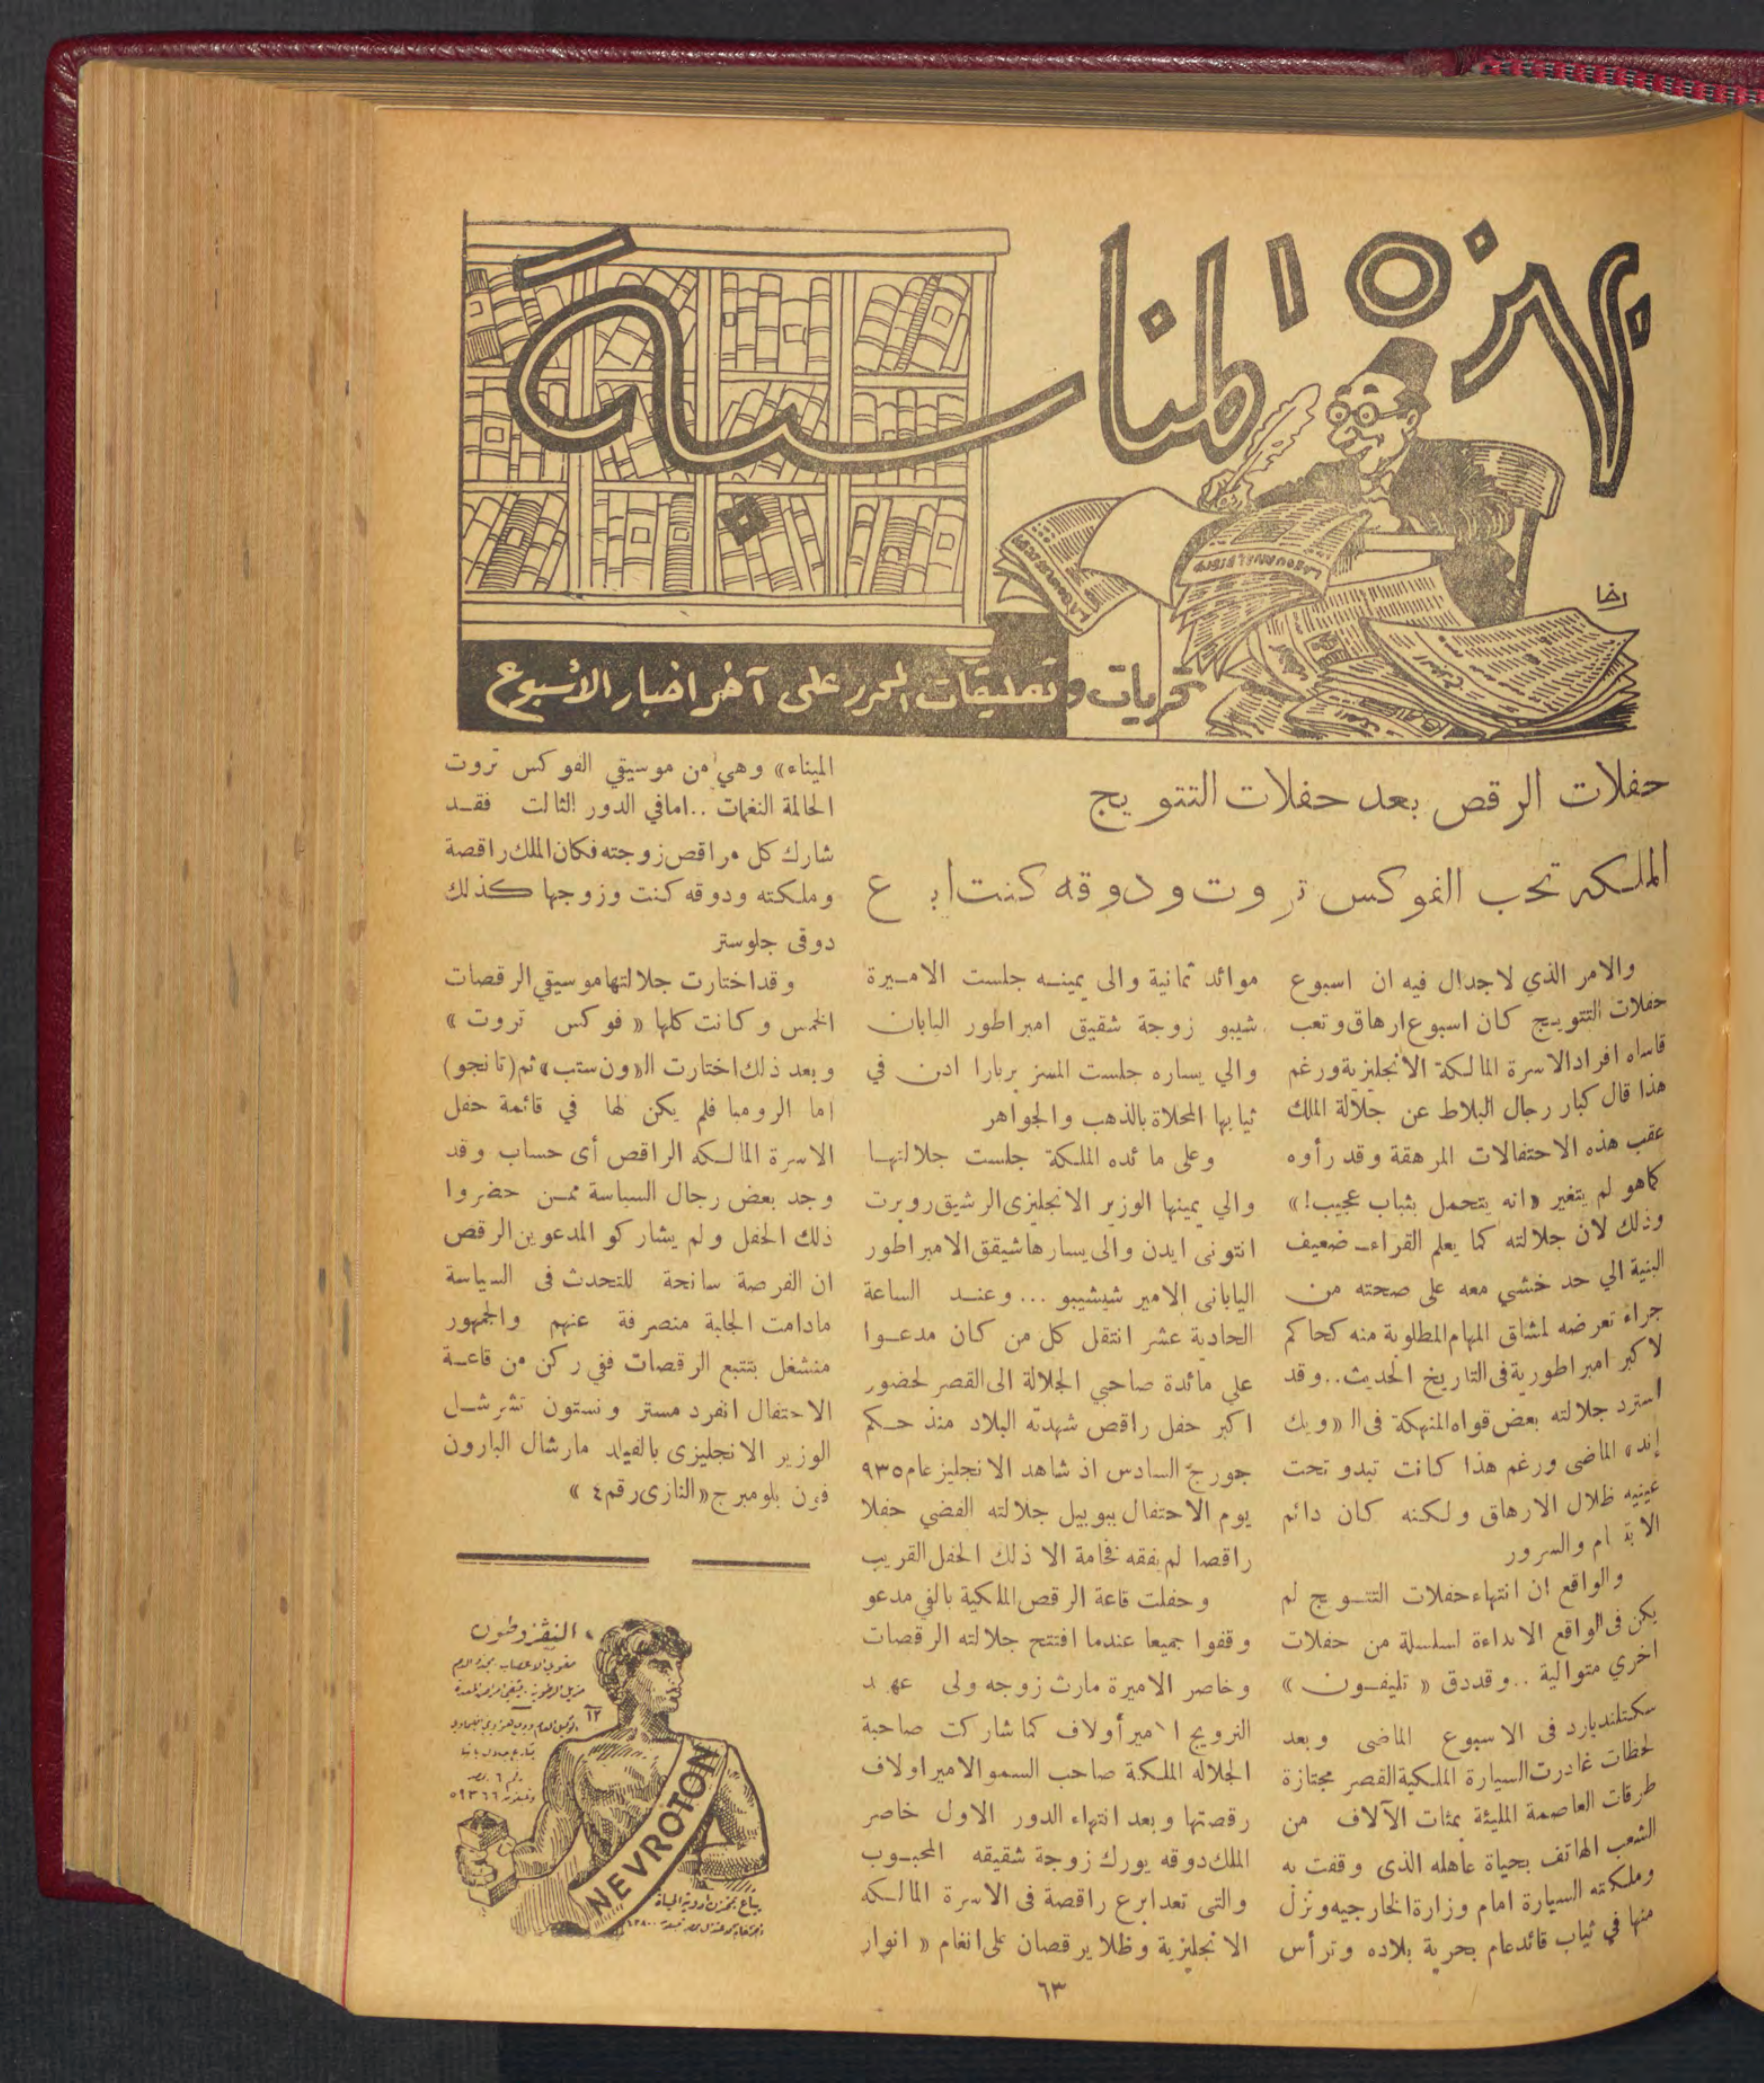 بهذه المناسبة
رخا
تحريات وتعليقات المحرر على آخر اخبار الأسبوع
حفلات الرقص بعد حفلات التتويج
الملكه تحب الفوكس تروت ودوقه كنت ابرع
والامر الذي لاجدال فيه ان اسبوع
حفلات التتويج كان اسبوع ارهاق وتعب
قاساه افراد الاسرة المالكة الانجليزية ورغم
هذا قال كبار رجال البلاط عن جلالة الملك
عقب هذه الاحتفالات المرهقة وقد رأوه
كاهو لم يتغير «انه يتحمل بثبات عجيب!»
وذلك لان جلالته كما يعلم القراء ـ ضعيف
البنية الي حد خشي معه على صحته من
جراء تعرضه لمشاق المهام المطلوبة منه كحاكم
لاكبر امبراطورية فى التاريخ الحديث.. وقد
استرد جلالته بعض قواه المنهكة فى الـ «ويك
إند» الماضى ورغم هذا كانت تبدو تحت
عينيه ظلال الارهاق ولكنه كان دائم
الابتسام والسرور
والواقع ان انتهاء حفلات التتويج لم
يكن فى الواقع الا بداءة لسلسلة من حفلات
اخري متوالية .. وقد دق « تليفون »
سكتلنديارد فى الاسبوع الماضى وبعد
لحظات غادرت السيارة الملكية القصر مجتازة
طرقات العاصمة المليئة بمئات الآلاف من
الشعب الهاتف بحياة عاهله الذى وقفت به
وملكته السيارة امام وزارة الخارجيه ونزل
منها في ثياب قائد عام بحرية بلاده وترأس
موائد ثمانية والى يمينه جلست الاميرة
شيبو زوجة شقيق امبراطور اليابان
والي يساره جلست المسز بربارا ادن في
ثيابها المحلاة بالذهب والجواهر
وعلى مائده الملكة جلست جلالتها
والي يمينها الوزير الانجليزى الرشيق روبرت
انتونى ايدن والى يسارها شيقق الامبراطور
اليابانى الامير شيشيبو ... وعند الساعة
الحادية عشر انتقل كل من كان مدعوا
علي مائدة صاحبي الجلالة الى القصر لحضور
اكبر حفل راقص شهدته البلاد منذ حكم
جورج السادس اذ شاهد الانجليز عام ٩٣٥
يوم الاحتفال بيوبيل جلالته الفضي حفلا
راقصا لم يفقه فخامة الا ذلك الحفل القريب
وحفلت قاعة الرقص الملكية بالفي مدعو
وقفوا جميعا عندما افتتح جلالته الرقصات
وخاصر الاميرة مارث زوجه ولى عهد
النرويج الامير أولاف كما شاركت صاحبة
الجلاله الملكة صاحب السمو الامير اولاف
رقصتها وبعد انتهاء الدور الاول خاصر
الملك دوقه يورك زوجة شقيقه المحبوب
والتى تعد ابرع راقصة فى الاسرة المالكه
الانجليزية وظلا يرقصان على انغام « انوار
الميناء» وهي من موسيقي الفوكس تروت
الحالمة النغمات .. اما في الدور الثالت فقد
شارك كل مراقص زوجته فكان الملك راقصة
وملكته ودوقه كنت وزوجها كذلك
دوقى جلوستر
وقد اختارت جلالتها موسيقي الرقصات
الخمس وكانت كلها « فوكس تروت »
وبعد ذلك اختارت الـ «ون ستب» ثم (تانجو)
اما الرومبا فلم يكن لها في قائمة حفل
الاسرة المالكه الراقص أى حساب وقد
وجد بعض رجال السياسة ممن حضروا
ذلك الحفل ولم يشاركو المدعوين الرقص
ان الفرصة سانحة للتحدث فى السياسة
مادامت الجلبة منصرفة عنهم والجمهور
منشغل بتتبع الرقصات ففي ركن من قاعة
الاحتفال انفرد مستر ونستون تشرشل
الوزير الانجليزى بالفيلد مارشال البارون
فون بلومبرج «النازى رقم ٤ »
النيفروطون
مقوي الاعصاب مجدد الدم
١٢
٥٩٣٦٦
NEVROTON
يباع بمخزن أدوية الحياة
٦٣